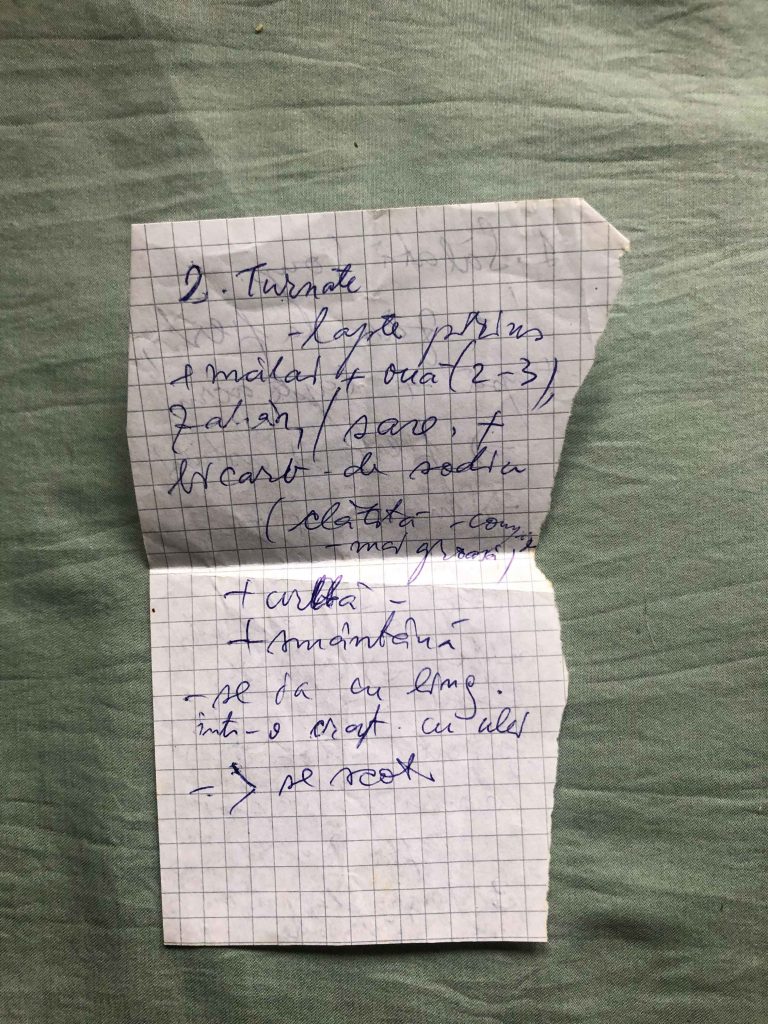 2. Turnate
- lapte prins
+ mălai + ouă (2-3),
zahăr, / sare, +
bicarb. de sodiu
(clătită -
- mai groasă)
+
+ smântână
- se ia cu ling.
într-o crat. cu ulei
=> se scot